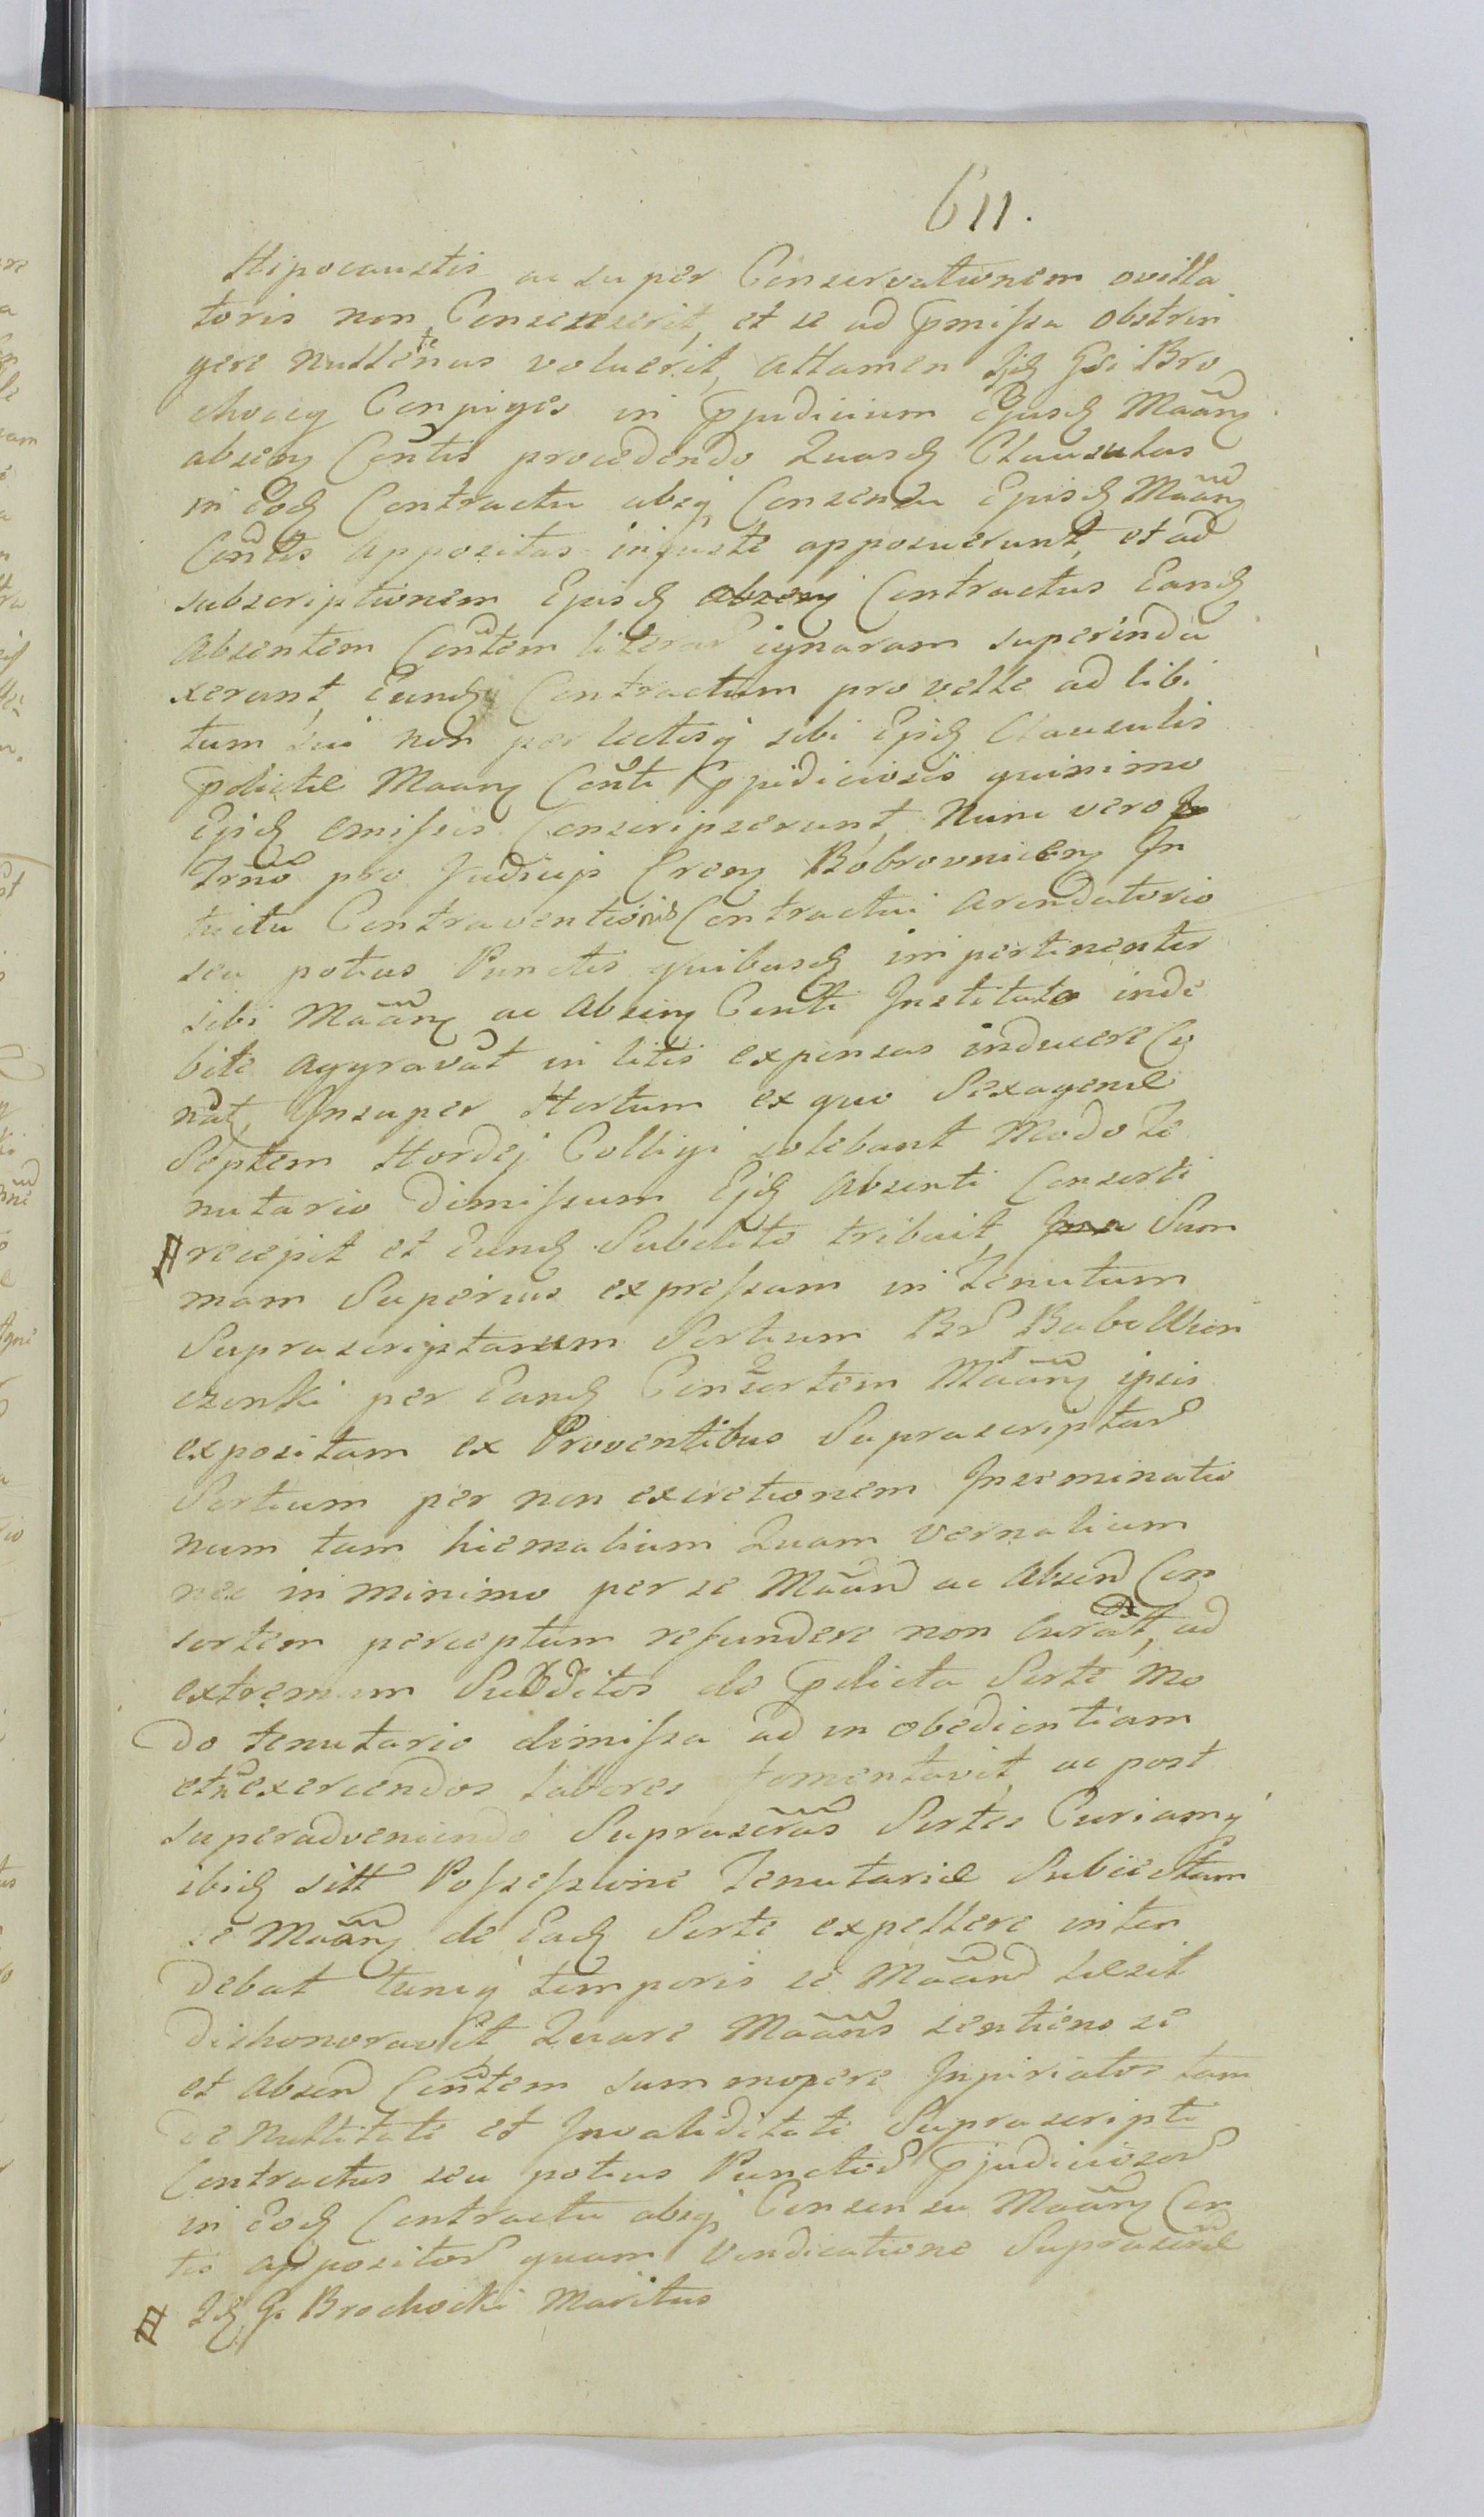 611.
Hipocaustis ac super Conservationem ovilla
toris non Consesserit, et se ad pmissa obstrin
gere nullte͂nus voluerit, attamen Iid Gsi Bro
choccy Conpiges in pjudicium Ejusd Maãnŋ
absenŋ Cõntis procedendo Quasd Clausulas
in Eod Contractu absq Consensu Episd Maãnŋ
Cõntis appositas injuste apposuerunt, et ad
subscriptionem Epis d absenŋ Contractus Eand
absentem Cõntem literar ignaram superindu
xerunt, Eundq Contractum pro velle ad libi
tum sui non per lectisq sibi Episd Clausulis
pdictæ Maanŋ Cõnti pjudiciosis quinimo
Episd omissis Conscripserunt, Nunc vero
Trño pro Judicijs Crenŋ Bobrovnicenŋ In
tuitu Contraventionis Contractui Arendatorio
seu potius Punctis quibusd impertinenter
sibi Maãnŋ ac Absenŋ Cõnti Institutos inde
bite aggravat in litis expensas inducere Co
nat, Insuper Hortum ex quo Sexagenæ
Septem Hordej Colligi solebant Modo Te
nutario dimissum Ejd Absenti Consorti
# recepit et Eund Subdito tribuit, Sum
mam Superius expressam in Tenutam
Suprascriptarum Sortium Br Babelllien
czenki per Eand Consortem Maãnŋ ipsis
expositam ex Proventibus Suprascriptar
Sortium per non exiretionem Inseminatio
num tam hiemalium Quam vernalium
nec in minimo per se Maãnd ac Absend Con
sortem perceptum refundere non Curat, ad
extremum Subditos de pdicta Sorte Mo
do tenutario dimissa ad in obedientiam
et ñ exercendos labores fomentavit, ac post
superadveniendo Suprascras Sortes Curiamq
ibid sitt Possessione Tenutariæ Subiectam
se Maãnŋ de Ead Sorte expellere inten
debat tuncq temporis se Maãnd Læsit
dishonoravit, Quare Maãns sentiens se
et Absend Cõntem summopere Injuriatos tam
de Nullitate et Invaliditate Suprascripti
Contractus seu potius Punctor pjudiciosor
in Eod Contractu absq Consensu Maãnŋ Con
tis appositor quam Vindicatione Suprascræ
# Id G. Brochocki Maritus